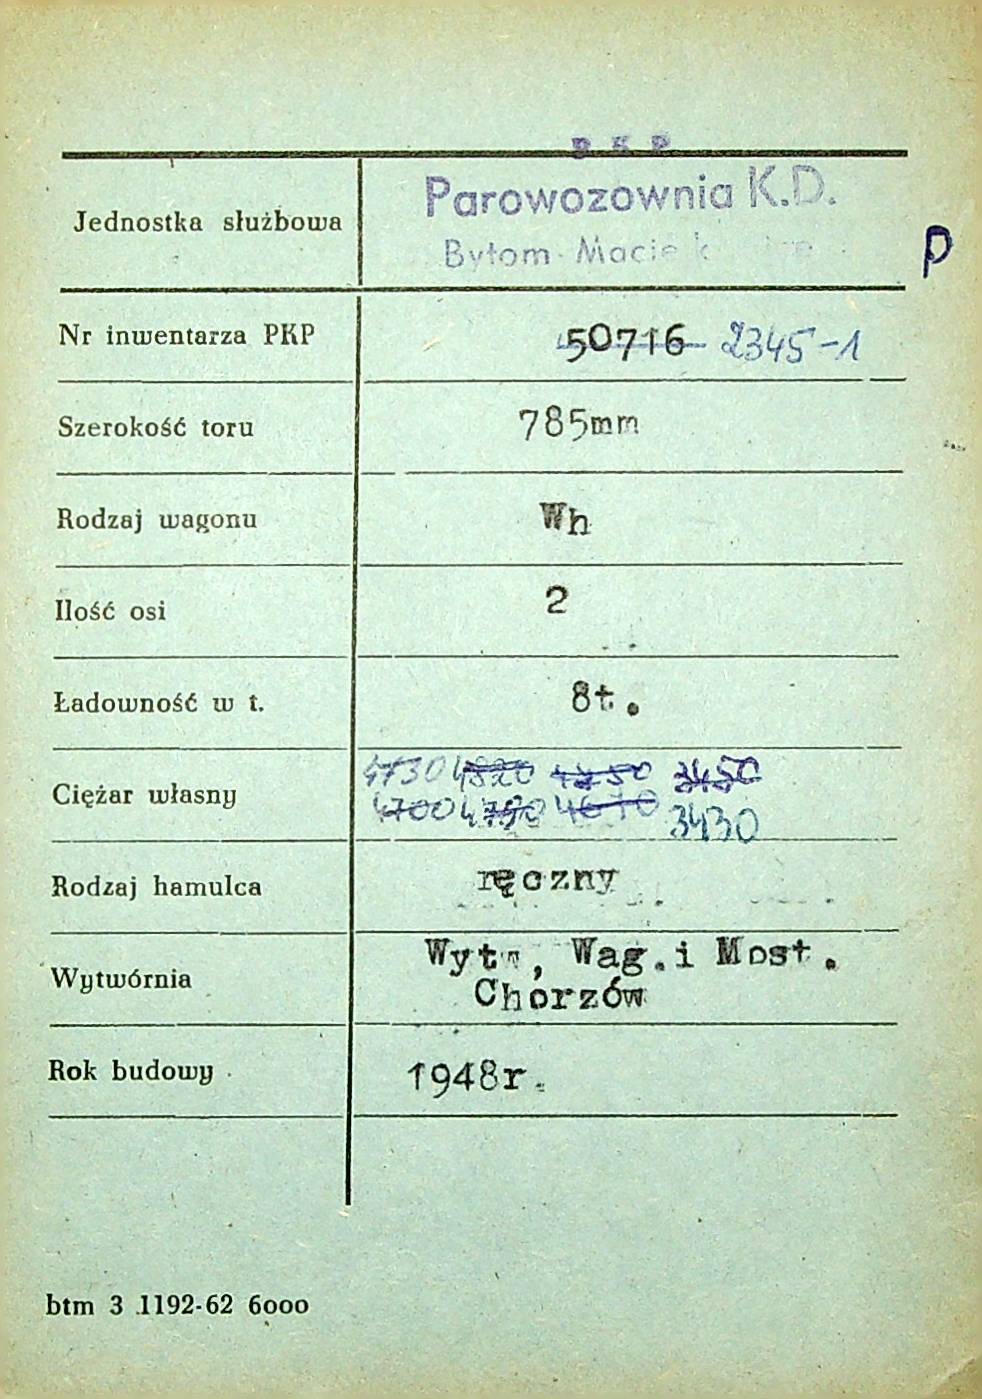 PKP
Jednostka służbowa Parowozownia K.D.
Bytom
P
Nr inwentarza PKP 50716 2345-1
Szerokość toru 785mm
Rodzaj wagonu Wh
Ilość osi 2
Ładowność w t. 8t.
4730 4820 4750 3450
Ciężar własny 4700 4790 4670 3430
Rodzaj hamulca ręczny
Wytwórnia Wytw, Wag.i Most.
Chorzów
Rok budowy 1948r.
btm 3 1192-62 6000